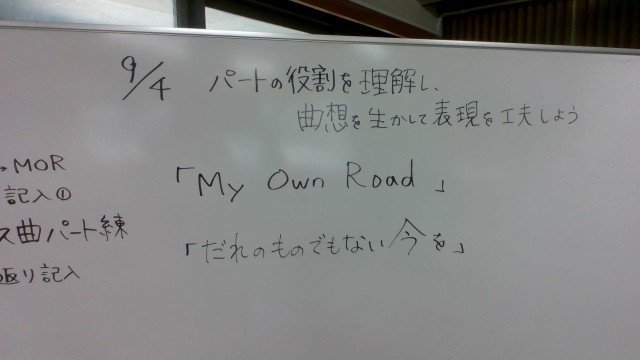 9/4 パートの役割を理解し、
曲想を生かして表現を工夫しよう
→MOR
記入①
ス曲パート練
返り記入
「My Own Road」
「だれのものでもない今を」